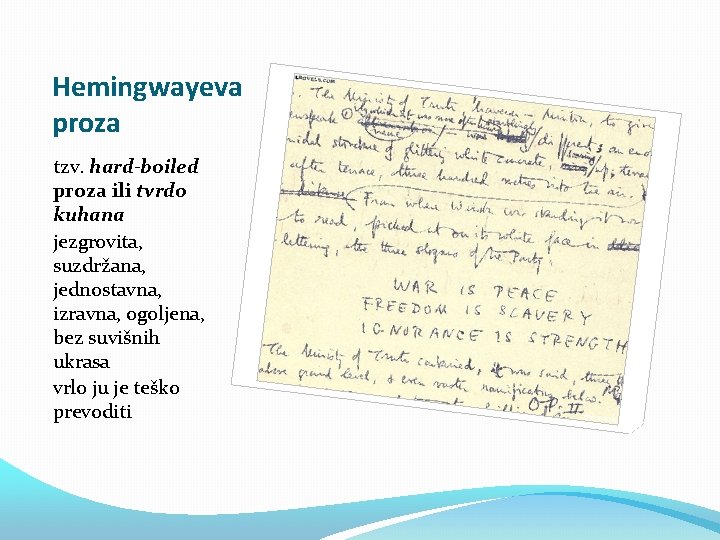 Hemingwayeva
proza
tzv. hard-boiled
proza ili tvrdo
kuhana
jezgrovita,
suzdržana,
jednostavna,
izravna, ogoljena,
bez suvišnih
ukrasa
vrlo ju je teško
prevoditi
The Ministry of Truth
structure of glittering white concrete,
after terrace, three hundred metres into the air.
From where Winston was standing it
to read, picked out on its white face in
lettering, the three slogans of the Party:
WAR IS PEACE
FREEDOM IS SLAVERY
IGNORANCE IS STRENGTH
The Ministry of Truth contained, it was said, three
above ground level, & even vaster ramifications below.